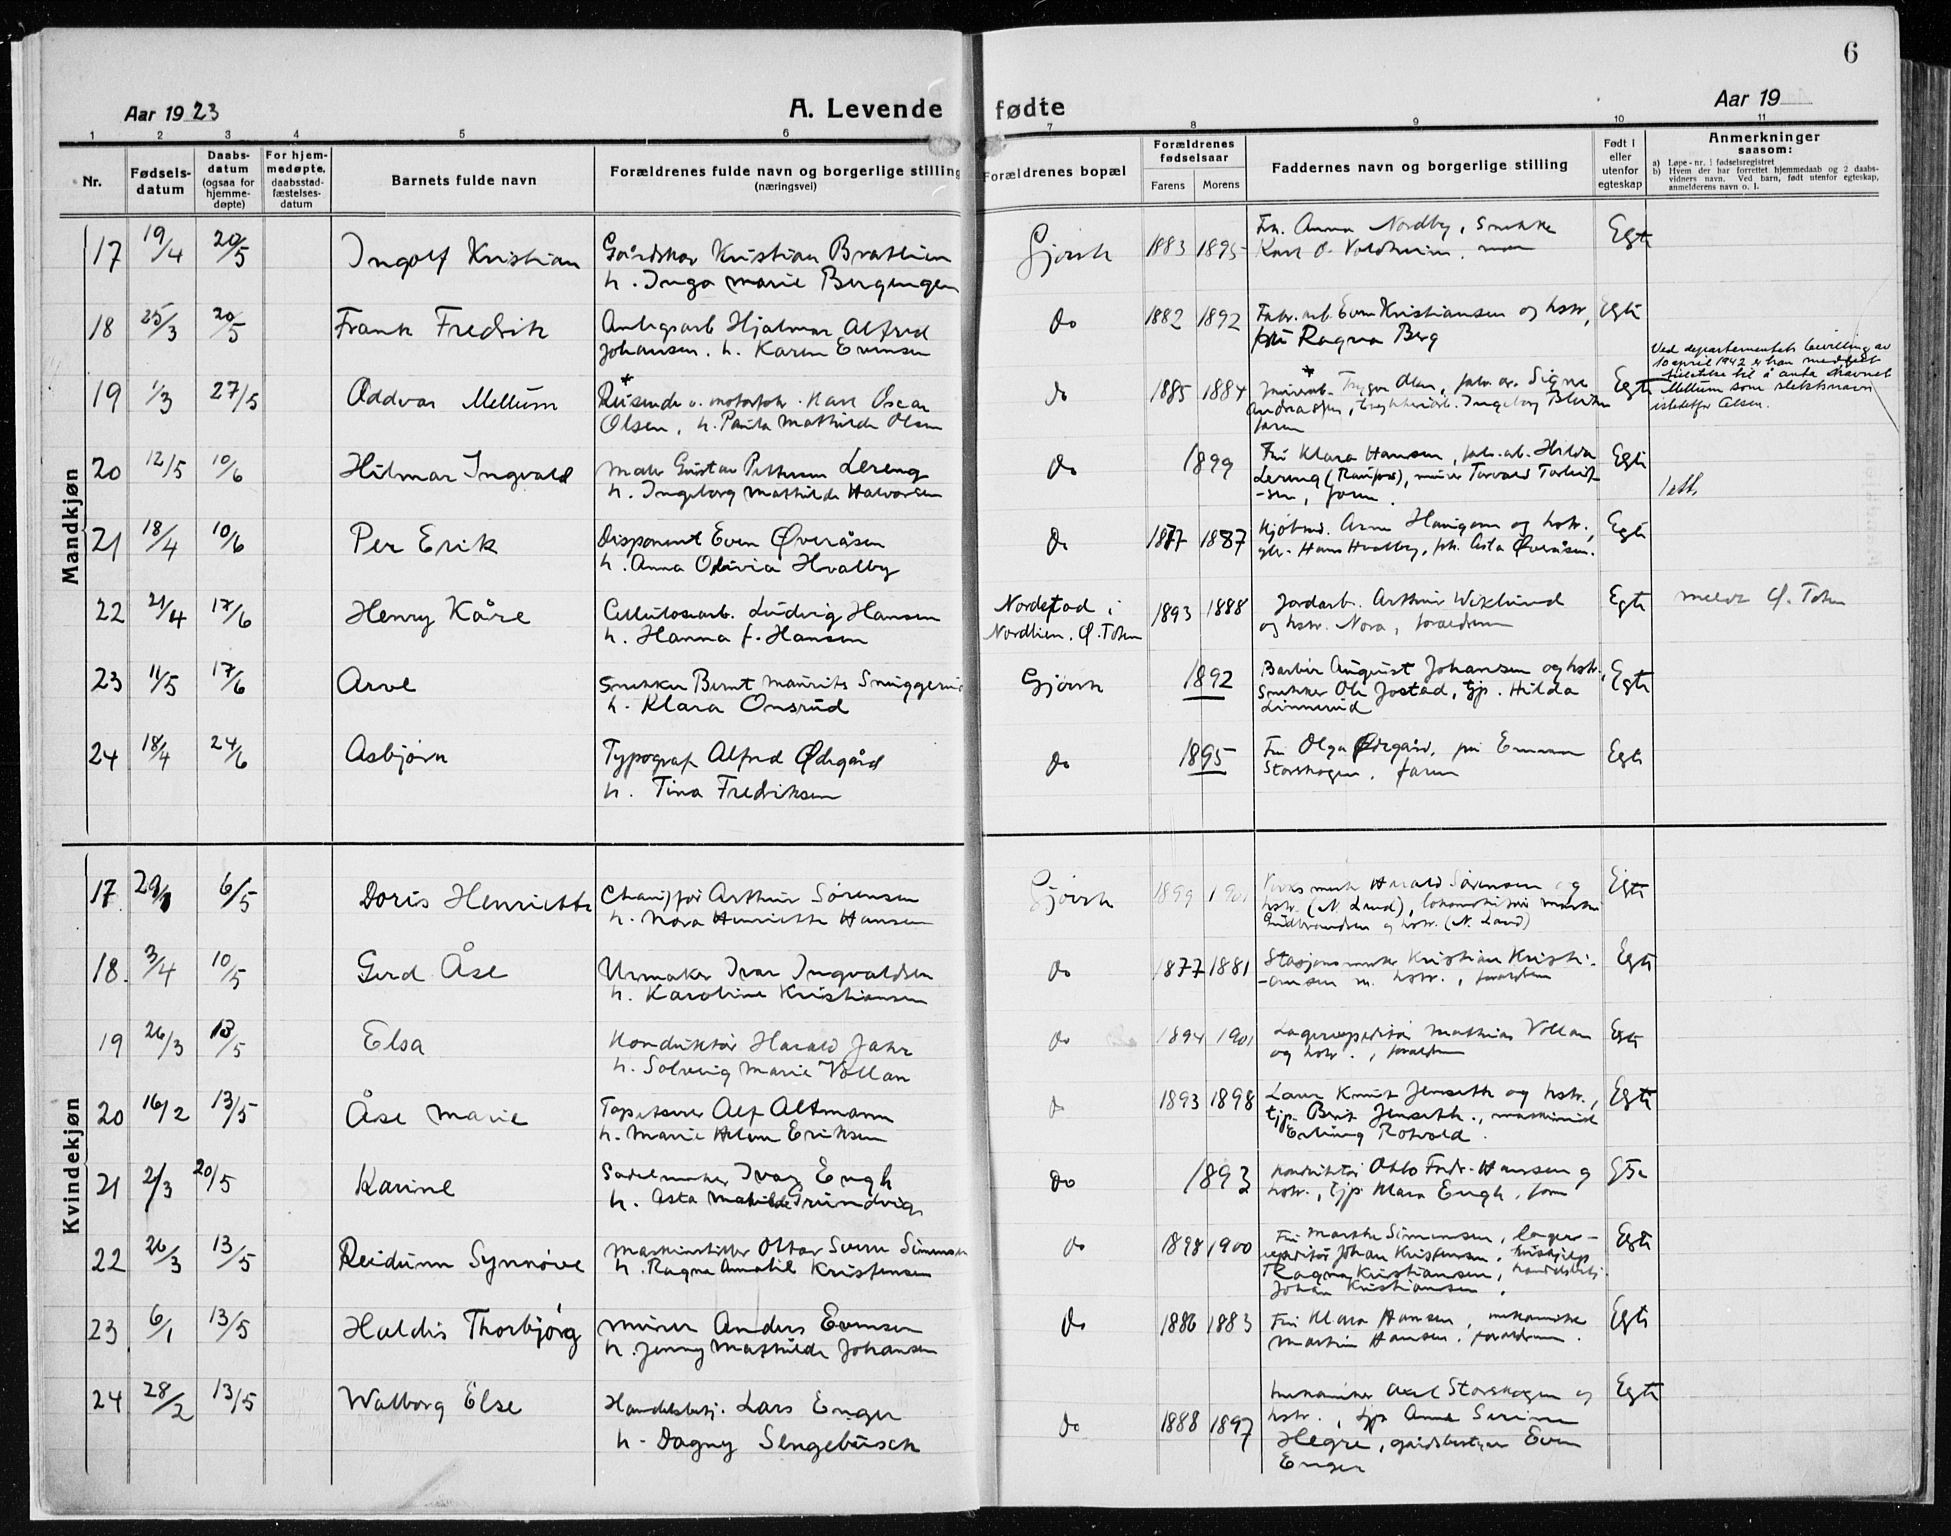 6
Aar 1923
A. Levende fødte
Aar 19
1 2 3 4 5 6 7 8 9 10 11
Nr.
Fødsels-
datum
Daabs-
datum
(ogsaa for
hjemme-
døpte)
For hjem-
medøpte,
daabsstad-
fæstelses-
datum
Barnets fulde navn
Forældrenes fulde navn og borgerlige stilling
(næringsvei)
Forældrenes bopæl
Forældrenes
fødselsaar
Farens Morens
Faddernes navn og borgerlige stilling
Født i
eller
utenfor
egteskap
Anmerkninger
saasom:
a) Løpe-nr. i fødselsregistret
b) Hvem der har forrettet hjemmedaab og 2 daabs-
vidners navn. Ved barn, født utenfor egteskap,
anmelderens navn o. l.
Mandkjøn
17 19/4 20/5 Ingolf Kristian Kristian Bratlien Gjøvik 1883 1895 Frk. Anna Nordby, Snekker Egte
h. Inga Marie Bergengen Karl O. Voldheim
18 25/3 20/5 Frank Fredrik Hjalmar Alfred do 1882 1892 Fabr. arb. Even Kristiansen og hstr., Egte
Johansen. h. Karen Evensen Ragna Berg
19 1/3 27/5 Oddvar Mellum Reisende Karl Oscar do 1885 1884 Olsen, Signe Egte
Olsen, h. Paula Mathilde Olsen Ingeborg
faren
Ved departementets bevilling av
10 april 1942 er han meddelt
tillatelse til å anta navnet
Mellum som slektsnavn
istedetfor Olsen.
20 12/5 10/6 Hilmar Ingvald Maler Gustav Pettersen Lereng do 1899 Fru Klara Hansen, fabr. arb. Hilda Egte
h. Ingeborg Mathilde Halvorsen Lereng (Raufoss), murer Torvald
-sen, faren.
21 18/4 10/6 Per Erik Disponent Even Øveråsen do 1877 1887 Kjøbmd. Arne og hstr., Egte
h. Anna Olivia Hvalby Hans Hvalby, frk. Asta Øveråsen.
22 21/4 17/6 Henry Kåre Cellulosearb. Ludvig Hansen Nordstad i 1893 1888 Jordarb. Arthur Wiklund Egte Ø. Toten
h. Hanna f. Hansen Nordlien. Ø. Toten og hstr. Nora, forældrene
23 11/5 17/6 Arve Snekker Bernt Maurits Gjøvik 1892 Barber August Johansen og hstr., Egte
h. Klara Onsrud Snekker Ole Jostad, tjp. Hilda
Linnerud
24 18/4 24/6 Asbjørn Typograf Alfred Ødegård do 1895 Fru Olga Ødegård, Egte
h. Tina Fredriksen Storskogen, faren
Kvindekjøn
17. 6/5 Doris Henriette Chauffør Arthur Sørensen Gjøvik 1899 1901 Harald Sørensen og Egte
h. Nora Henriette Hansen hstr. (N. Land),
Gudbrandsen og hstr. (N. Land)
18. 3/4 10/5 Gerd Åse Urmaker Ivar Ingvaldsen do 1877 1881 Kristian Kristi- Egte
h. Karoline Kristiansen -ansen m. hstr., forældrene
19 26/3 13/5 Elsa Konduktør Harald Jahr do 1894 1901 Lagerexpeditør Mathias Vollan Egte
h. Solveig Marie Vollan og hstr., forældrene
20 16/2 13/5 Åse Marie Tapetserer Alf Altmann do 1893 1898 Knut Jenseth og hstr., Egte
h. Marie Helene Eriksen tjp. Berit Jenseth, maskinist
Erling Rotvold.
21 2/3 20/5 Karine Sadelmaker Ivar Engh do 1893 Konduktør Otto Fredr. Hansen og Egte
h. Asta Mathilde Grundvig hstr., tjp. Klara Engh, faren
22 26/3 13/5 Reidunn Synnøve Ottar Sverre Simensen do 1898 1900 Fru Marthe Simensen, lager- Egte
h. Ragna Amabil Kristensen Johan Kristensen,
Ragna Kristiansen,
Johan Kristiansen.
23 6/1 13/5 Haldis Thorbjørg Murer Anders Evensen do 1886 1883 Fru Klara Hansen, mekaniker Egte
h. Jenny Mathilde Johansen Martin Hansen, forældrene.
24 28/2 13/5 Walborg Else Handelsbetj. Lars Enger do 1888 1897 Mekaniker Axel Storskogen og Egte
h. Dagny Sengebusch hstr., tjp. Anne Serine
Hegre, gårdsbestyrer Even
Enger